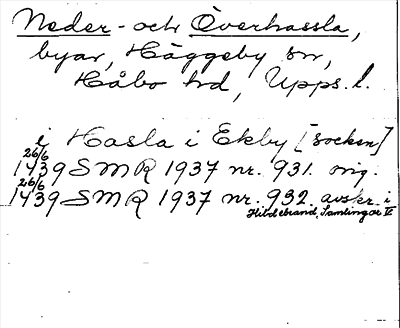 Neder- och Överhassla,
byar, Häggeby sn,
Håbo hd, Upps. l.
i Hasla i Ekby [socken]
26/6 1439 SMR 1937 nr. 931. orig.
26/6 1439 SMR 1937 nr. 932. avskr. i
Hildebrand, Samlingar V